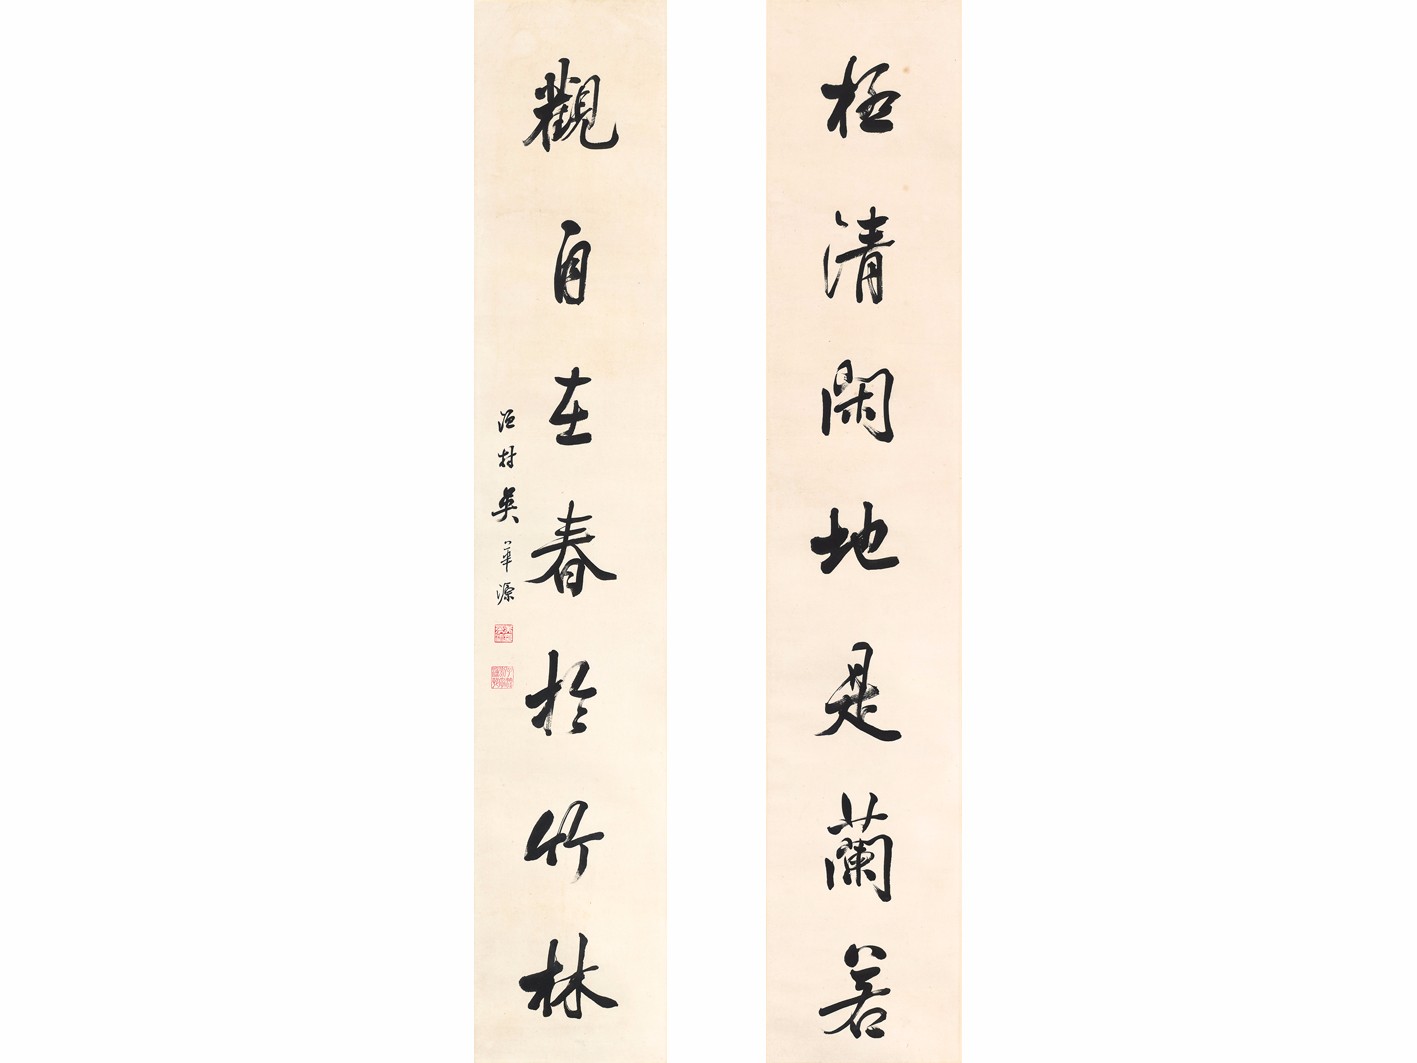 極清閑地是蘭若
觀自在春於竹林
漚村吳華源